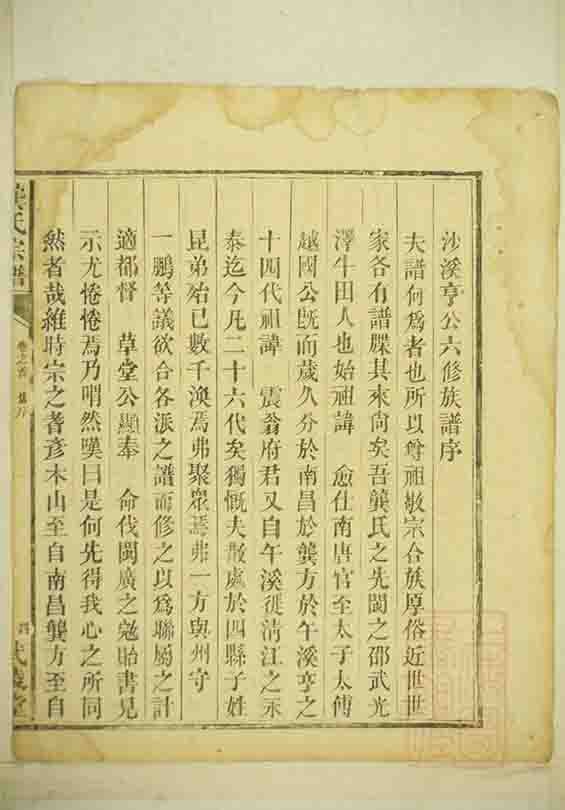 沙溪亨公六修族譜序
夫譜何爲者也所以尊祖敬宗合族厚俗近世世
家各有譜牒其來尚矣吾龔氏之先閩之邵武光
澤牛田人也始祖諱 愈仕南唐官至太子太傅
越國公既而歲久分於南昌於龔方於午溪亨之
十四代祖諱 震翁府君又自午溪徙清江之永
泰迄今凡二十六代矣獨慨夫散處於四縣子姓
昆弟殆已數千渙焉弗聚衆焉弗一方與州守
一鵬等議欲合各派之譜而修之以爲聯屬之計
適都督 草堂公顯奉 命伐閩廣之 貽書見
示尤惓惓焉乃喟然嘆曰是何先得我心之所同
然者哉維時宗之耆彥木山至自南昌龔方至自
氏宗譜
卷之首